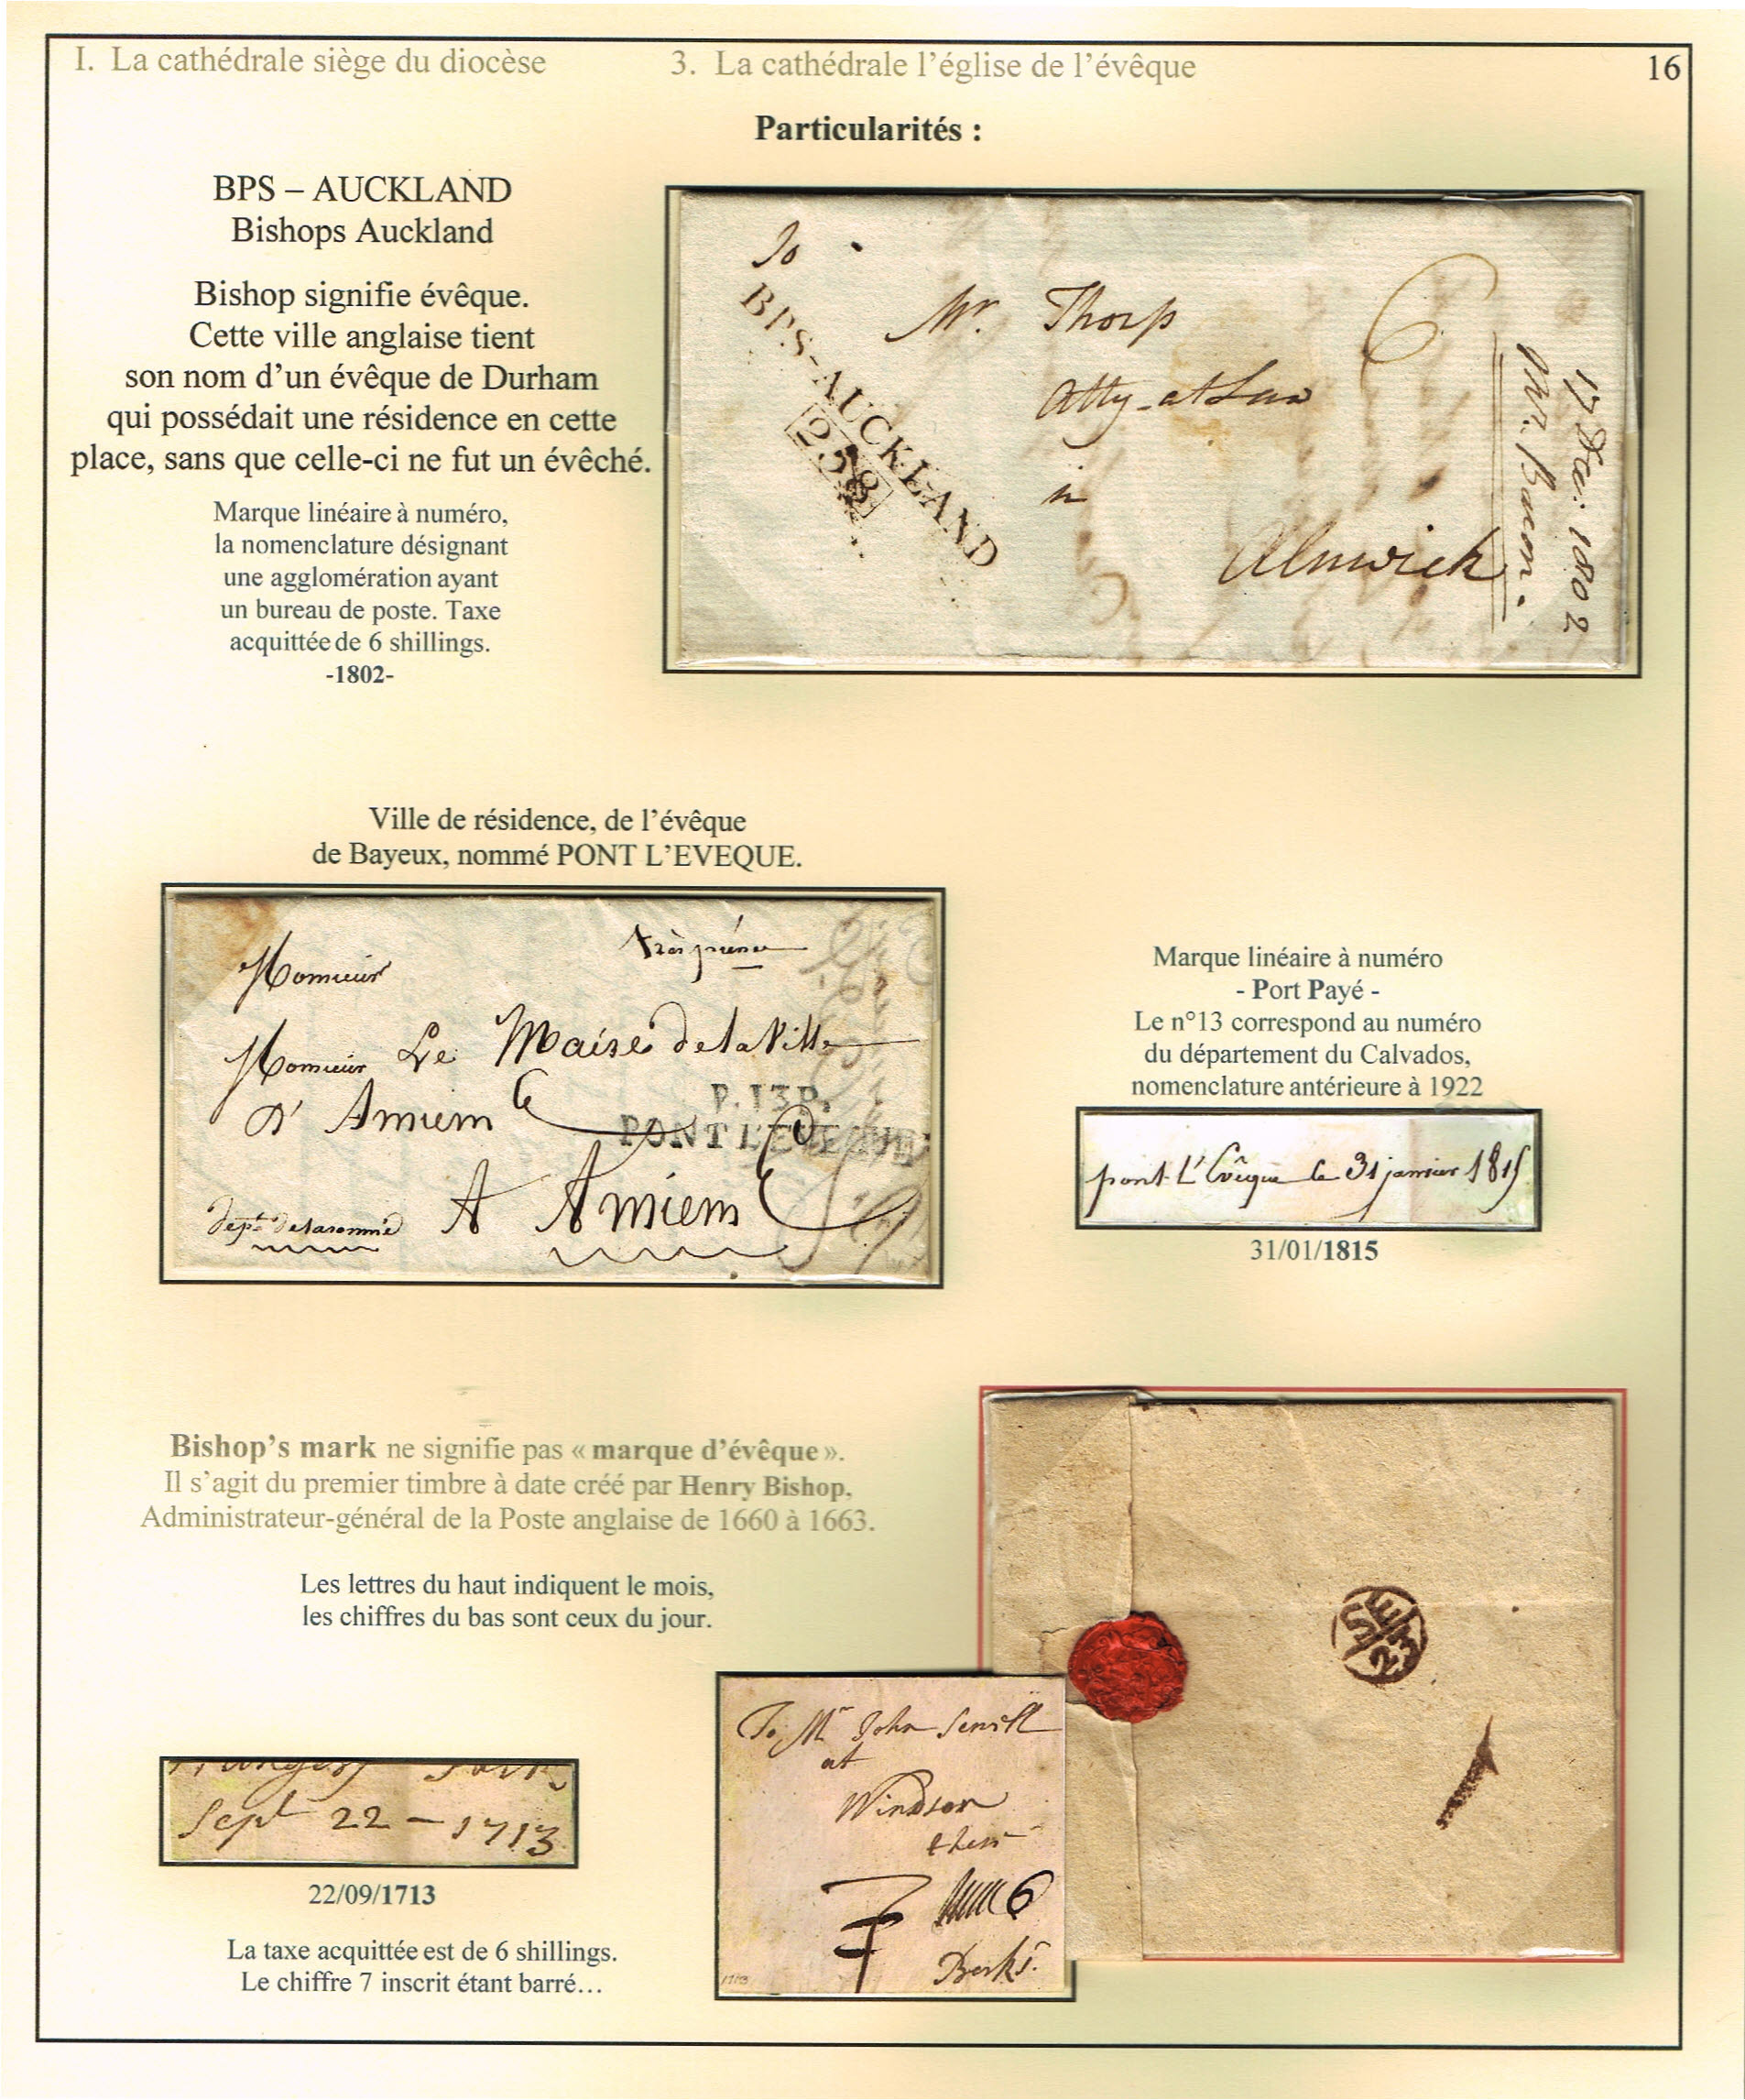 I. La cathédrale siège du diocèse
3. La cathédrale l'église de l'évêque
16
Particularités :
BPS – AUCKLAND
Bishops Auckland
Bishop signifie évêque.
Cette ville anglaise tient
son nom d'un évêque de Durham
qui possédait une résidence en cette
place, sans que celle-ci ne fut un évêché.
Marque linéaire à numéro,
la nomenclature désignant
une agglomération ayant
un bureau de poste. Taxe
acquittée de 6 shillings.
-1802-
To
BPS-AUCKLAND
258
Mr. Thorp
Atty-at Law
in
Alnwick
6
17 Dec. 1802
Mr.
Ville de résidence, de l'évêque
de Bayeux, nommé PONT L'EVEQUE.
Monsieur
Monsieur Le Maire de la Ville
D'Amiens
P.13P.
PONT L'EVEQUE
A Amiens
Marque linéaire à numéro
- Port Payé -
Le n°13 correspond au numéro
du département du Calvados,
nomenclature antérieure à 1922
pont L'Evêque le 31 janvier 1815
31/01/1815
Bishop's mark ne signifie pas « marque d'évêque ».
Il s'agit du premier timbre à date créé par Henry Bishop,
Administrateur-général de la Poste anglaise de 1660 à 1663.
Les lettres du haut indiquent le mois,
les chiffres du bas sont ceux du jour.
SE
23
To Mr John
at
Windsor
7
6
Berks.
Sept 22 - 1713
22/09/1713
La taxe acquittée est de 6 shillings.
Le chiffre 7 inscrit étant barré…